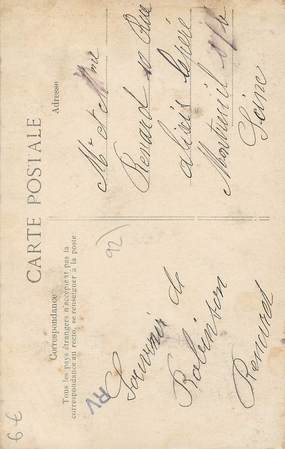 CARTE POSTALE
Correspondance
Tous les pays étrangers n'acceptent pas la
correspondance au recto, se renseigner à la poste
Adresse
Souvenir de
Robinson
Renard
RV
92)
6€
Mr et Mme
Renard 10 Rue
alexis lepère
Montreuil s/b
Seine